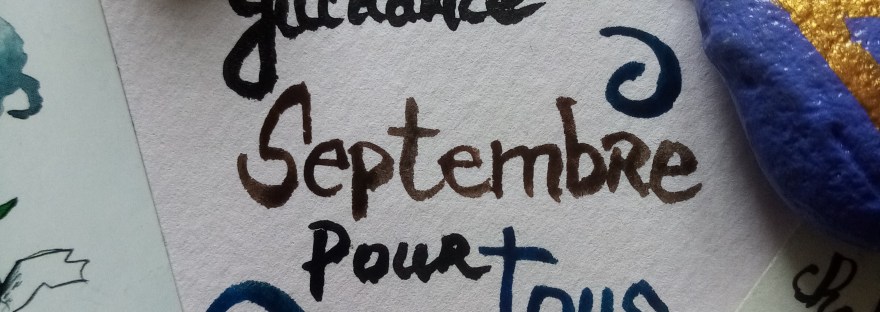 guidance
Septembre
pour tous